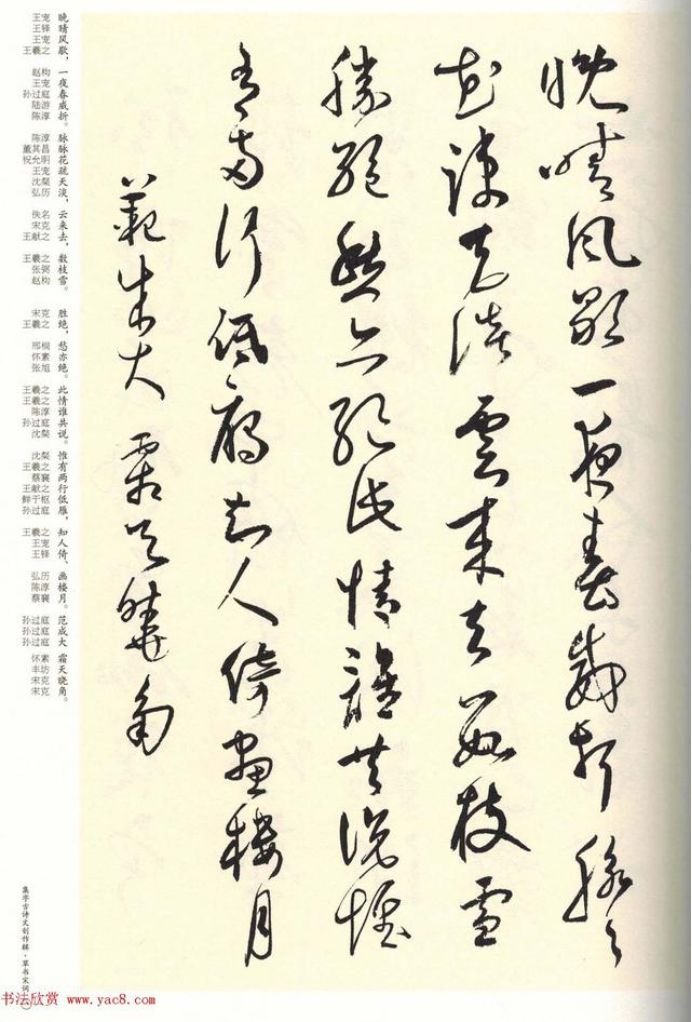 晚晴風歇一夜春威折脉々
花疎天淡雲来去數枝雪
勝絕愁亦絕此情誰共說惟
有兩行低雁知人倚畫樓月
範成大 霜天曉角
王宠 晚
王铎 晴
王宠 风
王羲之 歇，
赵构 一
王宠 夜
孙过庭 春
陆游 威
陈淳 折。
陈淳 脉
董其昌 脉
祝允明 花
王宠 疏
沈粲 天
弘历 淡，
佚名 云
宋克 来
王献之 去，
王羲之 数
张弼 枝
赵构 雪。
宋克 胜
王羲之 绝，
邢侗 愁
怀素 亦
张旭 绝。
王羲之 此
王羲之 情
陈淳 谁
孙过庭 共
沈粲 说。
沈粲 惟
王羲之 有
蔡襄 两
王献之 行
鲜于枢 低
孙过庭 雁，
王羲之 知
王宠 人
王铎 倚、
弘历 画
陈淳 楼
蔡襄 月。
孙过庭 范
孙过庭 成
孙过庭 大
怀素 霜
丰坊 天
宋克 晓
宋克 角。
集字古诗文创作辑·草书宋词
书法欣赏 www.yac8.com